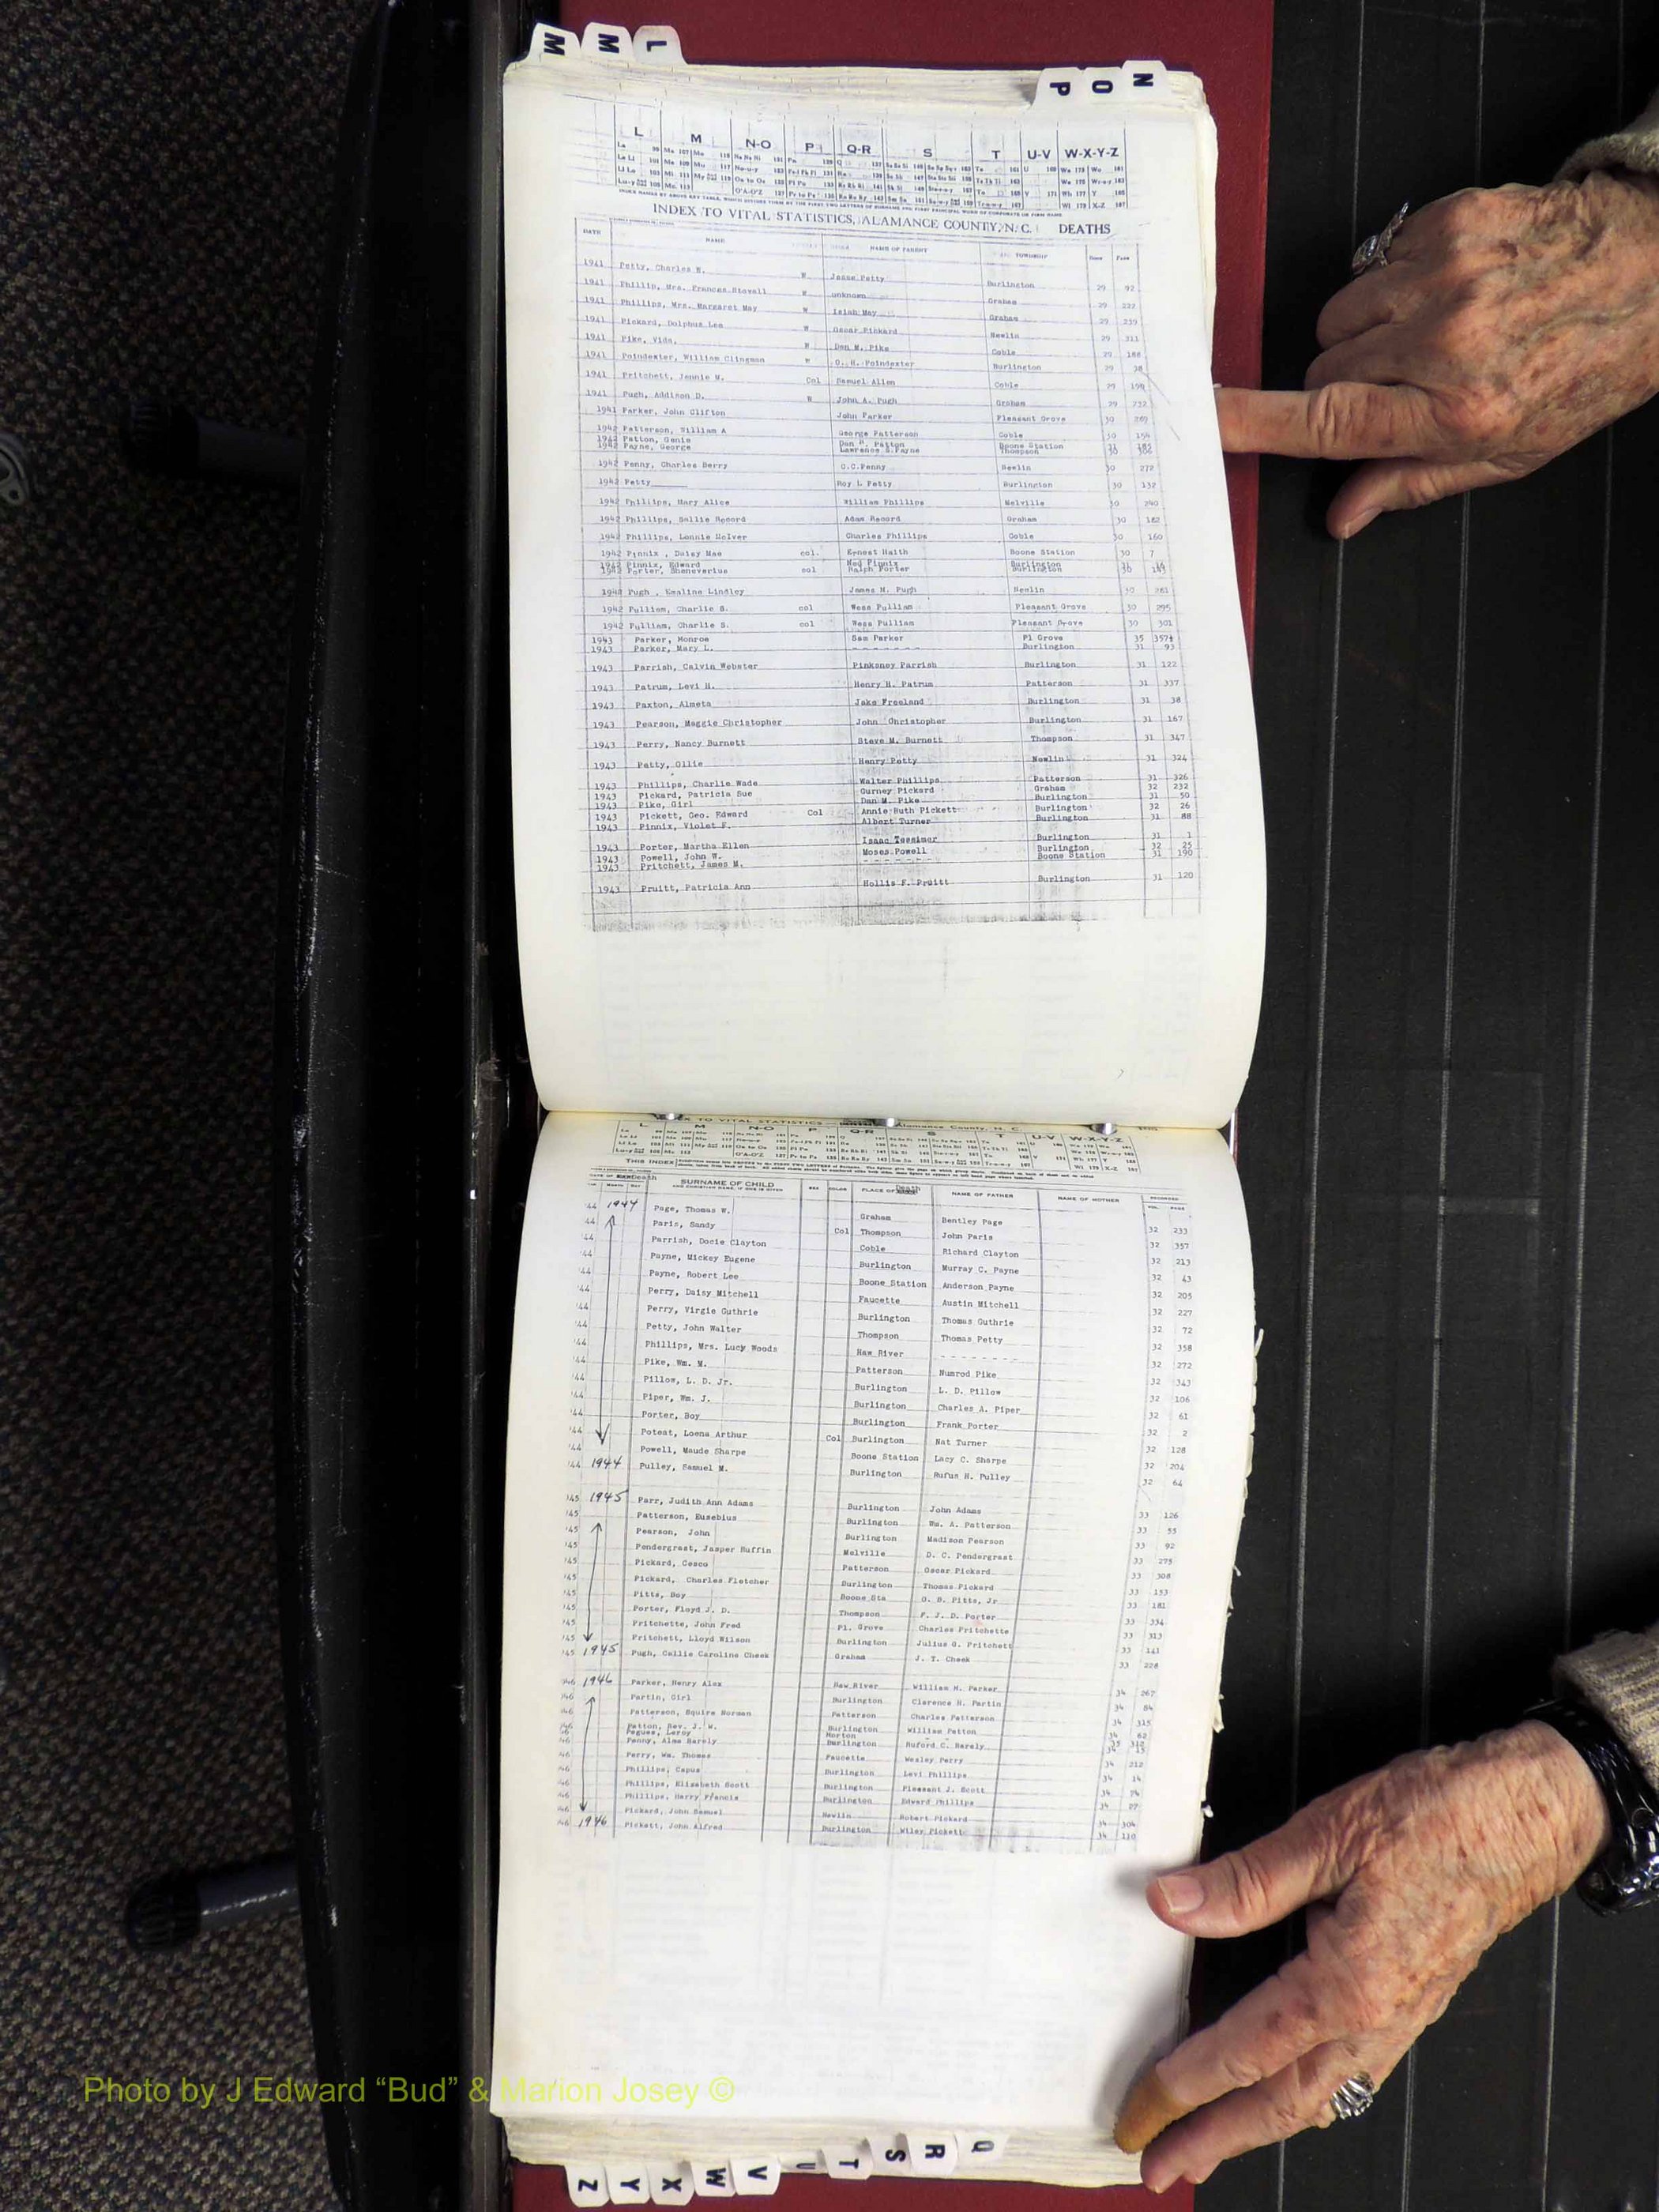 M M L
N O P
L M N-O P Q-R S T U-V W-X-Y-Z
INDEX TO VITAL STATISTICS, ALAMANCE COUNTY, N. C. DEATHS
DATE NAME NAME OF PARENT TOWNSHIP
1941 Petty, Charles E. W Jesse Petty Burlington 29 92
1941 Phillip, Mrs. Frances Stovall W unknown Graham 29
1941 Phillips, Mrs. Margaret May W Isiah May Graham 29 239
1941 Pickard, Dolphus Lee W Oscar Pickard Newlin 29 311
1941 Pike, Vida. W Dan M. Pike Coble 29 188
1941 Poindexter, William Clingman W O. H. Poindexter Burlington 29 38
1941 Pritchett, Jennie M. Col Samuel Allen Coble 29
1941 Pugh, Addison D. W John A. Pugh Graham 29 232
1941 Parker, John Clifton John Parker Pleasant Grove 30 269
1942 Patterson, William A George Patterson Coble 30 154
1942 Patton, Genie Dan P. Patton Boone Station
1942 Payne, George Lawrence S. Payne Thompson 30
1942 Penny, Charles Berry O.C.Penny Newlin 30 272
1942 Petty Roy L Petty Burlington 30 132
1942 Phillips, Mary Alice William Phillips Melville 30 240
1942 Phillips, Sallie Record Adam Record Graham 30 182
1942 Phillips, Lonnie McIver Charles Phillips Coble 30 160
1942 Pinnix , Daisy Mae col. Ernest Haith Boone Station 30 7
1942 Pinnix, Edward Ned Pinnix Burlington
1942 Porter, Sheneverius col Ralph Porter Burlington 30
1942 Pugh , Emaline Lindley James M. Pugh Newlin 30 261
1942 Pulliam, Charlie S. col Wess Pulliam Pleasant Grove 30 295
1942 Pulliam, Charlie S. col Wess Pulliam Pleasant Grove 30 301
1943 Parker, Monroe Sam Parker Pl Grove 35
1943 Parker, Mary L. - - - - - - - Burlington 31 93
1943 Parrish, Calvin Webster Pinkeney Parrish Burlington 31 122
1943 Patrum, Levi H. Henry H. Patrum Patterson 31 337
1943 Paxton, Almeta Jake Freeland Burlington 31 38
1943 Pearson, Maggie Christopher John Christopher Burlington 31 167
1943 Perry, Nancy Burnett Steve M. Burnett Thompson 31 347
1943 Petty, Ollie Henry Petty Newlin 31 324
1943 Phillips, Charlie Wade Walter Phillips Patterson 31 326
1943 Pickard, Patricia Sue Gurney Pickard Graham 32 232
1943 Pike, Girl Dan M. Pike Burlington 31 50
1943 Pickett, Geo. Edward Col Annie Ruth Pickett Burlington 32 26
1943 Pinnix, Violet F. Albert Turner Burlington 31 88
1943 Porter, Martha Ellen Isaac Tessimer Burlington 31 1
1943 Powell, John W. Moses Powell Burlington 32 25
1943 Pritchett, James M. - - - - - - - Boone Station 31 190
1943 Pruitt, Patricia Ann Hollis F. Pruitt Burlington 31 120
L M N-O P Q-R S T U-V W-X-Y-Z
THIS INDEX
Death SURNAME OF CHILD SEX COLOR PLACE OF Death NAME OF FATHER NAME OF MOTHER RECORDED
'44 1944 Page, Thomas W. Graham Bentley Page 32 233
'44 Paris, Sandy Col Thompson John Paris 32 357
'44 Parrish, Docie Clayton Coble Richard Clayton 32 213
'44 Payne, Mickey Eugene Burlington Murray C. Payne 32 43
'44 Payne, Robert Lee Boone Station Anderson Payne 32 205
'44 Perry, Daisy Mitchell Faucette Austin Mitchell 32 227
'44 Perry, Virgie Guthrie Burlington Thomas Guthrie 32 72
'44 Petty, John Walter Thompson Thomas Petty 32 358
'44 Phillips, Mrs. Lucy Woods Haw River - - - - - - - - 32 272
'44 Pike, Wm. M. Patterson Numrod Pike 32 343
'44 Pillow, L. D. Jr. Burlington L. D. Pillow 32 106
'44 Piper, Wm. J. Burlington Charles A. Piper 32 61
'44 Porter, Boy Burlington Frank Porter 32 2
'44 Poteat, Loena Arthur Col Burlington Nat Turner 32 128
'44 Powell, Maude Sharpe Boone Station Lacy C. Sharpe 32 204
'44 1944 Pulley, Samuel M. Burlington Rufus H. Pulley 32 64
'45 1945 Parr, Judith Ann Adams Burlington John Adams 33 126
'45 Patterson, Eusebius Burlington Wm. A. Patterson 33 55
'45 Pearson, John Burlington Madison Pearson 33 92
'45 Pendergrast, Jasper Ruffin Melville D. C. Pendergrast 33 275
'45 Pickard, Cesco Patterson Oscar Pickard 33 308
'45 Pickard, Charles Fletcher Burlington Thomas Pickard 33 153
'45 Pitts, Boy Boone Sta O. B. Pitts, Jr 33 181
'45 Porter, Floyd J. D. Thompson F. J. D. Porter 33 334
'45 Pritchette, John Fred Pl. Grove Charles Pritchette 33 313
'45 Pritchett, Lloyd Wilson Burlington Julius G. Pritchett 33 141
'45 1945 Pugh, Callie Caroline Cheek Graham J. T. Cheek 33 228
1946 Parker, Henry Alex Haw River William M. Parker 34 267
Partin, Girl Burlington Clarence H. Partin 34 84
Patterson, Squire Norman Patterson Charles Patterson 34 315
Patton, Rev. J. W. Burlington William Patton 34 62
Pegues, Leroy Morton 35
Penny, Alma Barely Burlington Ruford C. Barely 34 15
Perry, Wm. Thomas Faucette Wesley Perry 34 212
Phillips, Capus Burlington Levi Phillips 34 14
Phillips, Elizabeth Scott Burlington Pleasant J. Scott 34 74
Phillips, Harry Francis Burlington Edward Phillips 34 27
Pickard, John Samuel Newlin Robert Pickard 34 304
1946 Pickett, John Alfred Burlington Wiley Pickett 34 110
Photo by J Edward “Bud” & Marion Josey ©
Z Y X W V U T S R Q